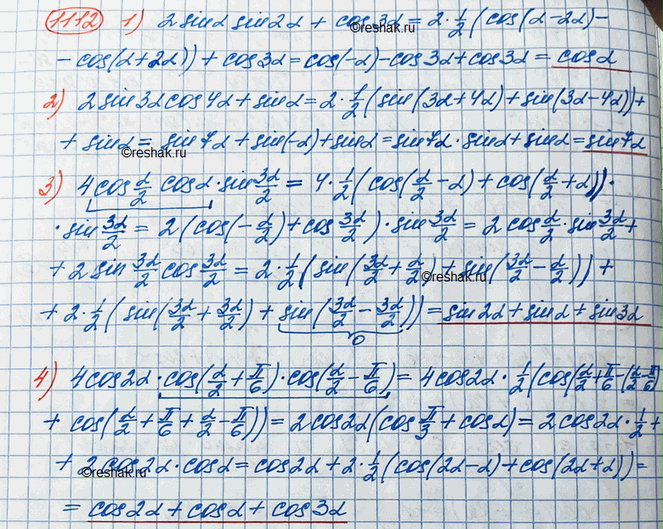 1112 1) 2 sinα sin2α + cos3α = 2·1/2 (cos(α-2α)-
- cos(α+2α)) + cos3α = cos(-α)-cos3α+cos3α = cosα
©reshak.ru
2) 2 sin3α cos4α + sinα = 2·1/2 (sin(3α+4α)+sin(3α-4α))+
+ sinα = sin7α + sin(-α)+sinα = sin7α · sinα + sinα = sin7α
©reshak.ru
3) 4 cos α/2 cosα · sin 3α/2 = 4·1/2 (cos(α/2 - α) + cos(α/2 + α))·
· sin 3α/2 = 2 (cos(-α/2) + cos 3α/2) · sin 3α/2 = 2 cos α/2 · sin 3α/2 +
+ 2 sin 3α/2 cos 3α/2 = 2·1/2 (sin(3α/2 + α/2) + sin(3α/2 - α/2)) +
©reshak.ru
+ 2·1/2 (sin(3α/2 + 3α/2) + sin(3α/2 - 3α/2)) = sin2α + sinα + sin3α
0
4) 4cos2α · cos(α/2 + π/6) · cos(α/2 - π/6) = 4cos2α · 1/2 (cos(α/2 + π/6 - (α/2 - π/6)
+ cos(α/2 + π/6 + α/2 - π/6)) = 2cos2α (cos π/3 + cosα) = 2cos2α · 1/2 +
+ 2cos2α · cosα = cos2α + 2·1/2 (cos(2α-α) + cos(2α+α)) =
©reshak.ru
= cos2α + cosα + cos3α